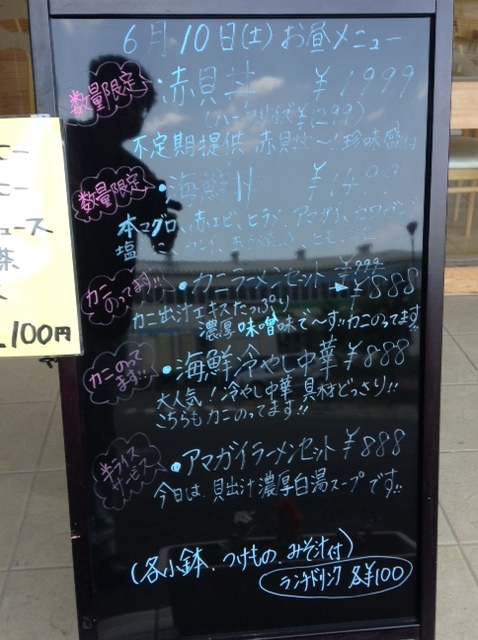 6月10日(土)お昼メニュー
数量限定
・赤貝丼 ¥1999
不定期提供 赤貝丼〜!珍味盛付
数量限定
・海鮮丼 ¥1499
本マグロ、赤エビ、ヒラメ、アマダイ、
塩
カニのってます!!
・カニラーメンセット ¥999
¥888
カニ出汁エキスたっぷり
濃厚味噌味で〜す!!カニのってます!!
カニのってます!!
・海鮮冷やし中華 ¥888
大人気!冷やし中華 具材どっさり!!
こちらもカニのってます!!
半ライスサービス
・アマガイラーメンセット ¥888
今日は、貝出汁濃厚白湯スープです!!
(各小鉢、つけもの、みそ汁付)
ランチドリンク 各¥100
ニー
ニー
ュース
茶
100円